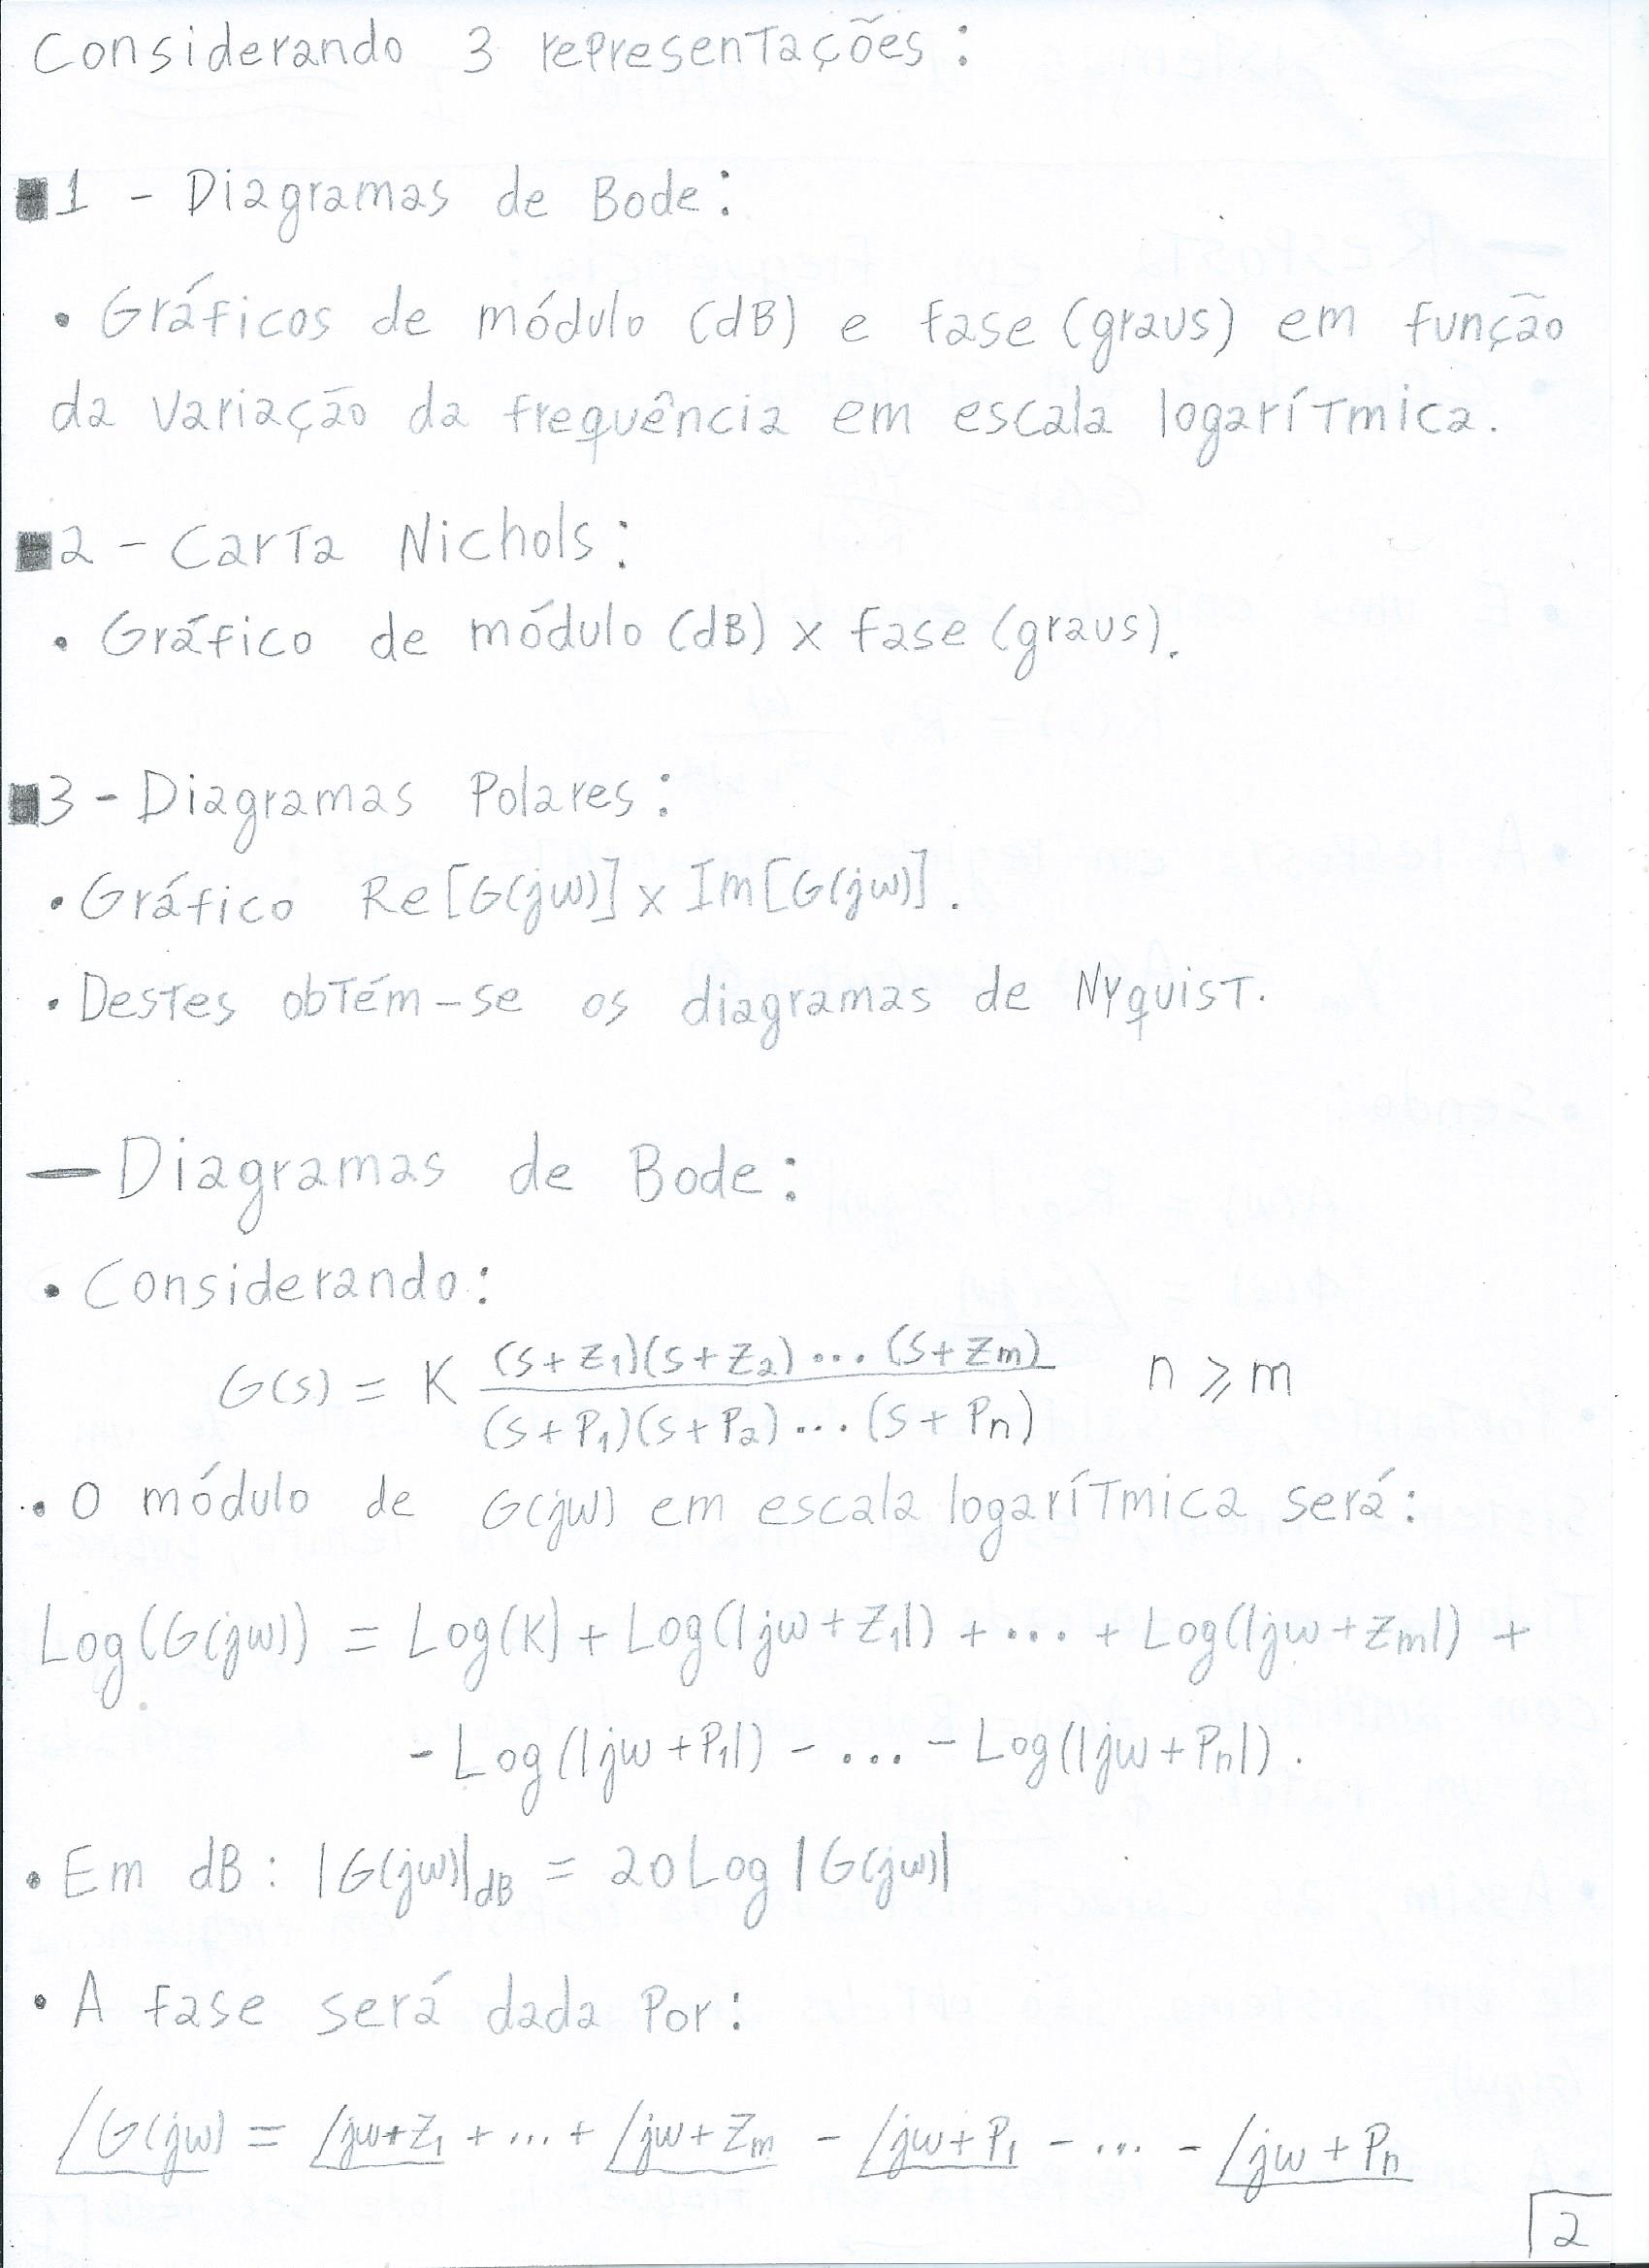 Considerando 3 representações:
1 - Diagramas de Bode:
• Gráficos de módulo (dB) e fase (graus) em função
da variação da frequência em escala logarítmica.
2 - Carta Nichols:
• Gráfico de módulo (dB) x fase (graus).
3 - Diagramas Polares:
• Gráfico Re[G(jw)] x Im[G(jw)].
• Destes obtém-se os diagramas de Nyquist.
— Diagramas de Bode:
• Considerando:
G(s) = K (s+z₁)(s+z₂)...(s+zm) / (s+P₁)(s+P₂)...(s+Pn)   n ⩾ m
• O módulo de G(jw) em escala logarítmica será:
Log(G(jw)) = Log(K) + Log(|jw+z₁|) + ... + Log(|jw+zm|) +
- Log(|jw+P₁|) - ... - Log(|jw+Pn|).
• Em dB: |G(jw)|dB = 20 Log |G(jw)|
• A fase será dada Por:
∠G(jw) = ∠jw+z₁ + ... + ∠jw+zm - ∠jw+P₁ - ... - ∠jw+Pn
2